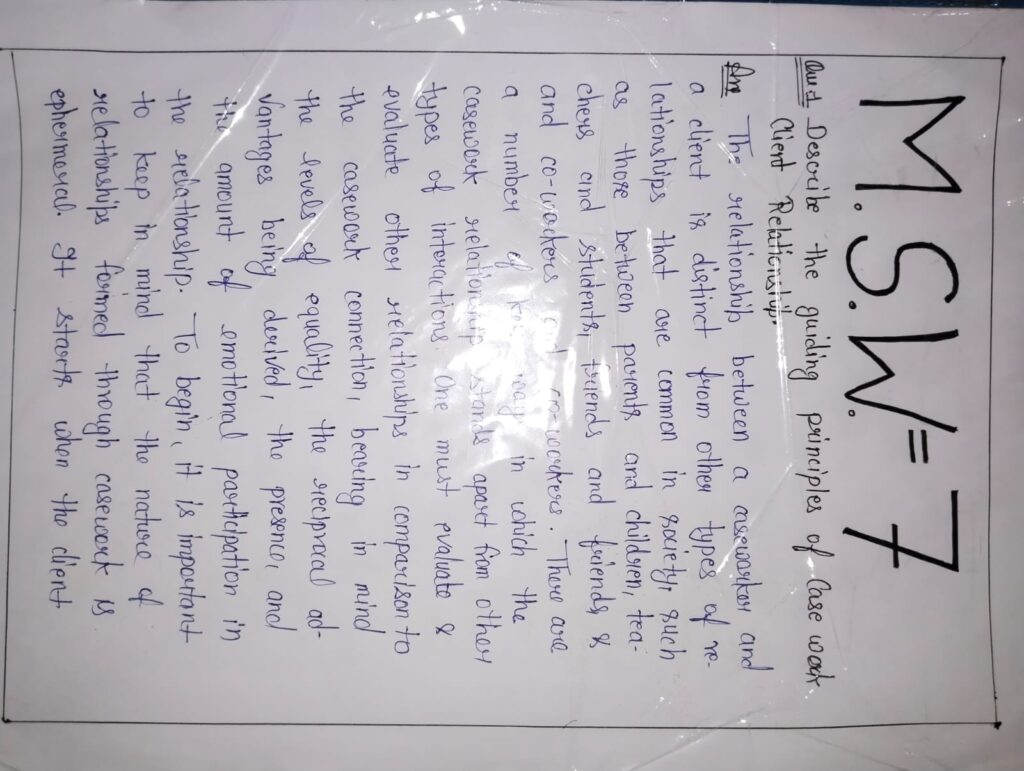 M.S.W. = 7
Que.1 Describe the guiding principles of Case work
Client Relationship.
Ans The relationship between a caseworker and
a client is distinct from other types of re-
lationships that are common in society, such
as those between parents and children, tea-
chers and students, friends and friends, &
and co-workers and co-workers. There are
a number of key ways in which the
casework relationship stands apart from other
types of interactions One must evaluate &
evaluate other relationships in comparison to
the casework connection, bearing in mind
the levels of equality, the reciprocal ad-
vantages being derived, the presence, and
the amount of emotional participation in
the relationship. To begin, it is important
to keep in mind that the nature of
relationships formed through casework is
ephermeral. It starts when the client